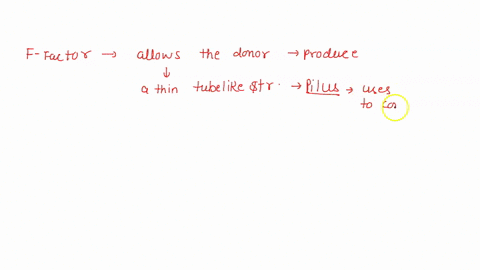 F-Factor → allows the donor → produce
↓
a thin tubelike str. → Pilus → uses
to co